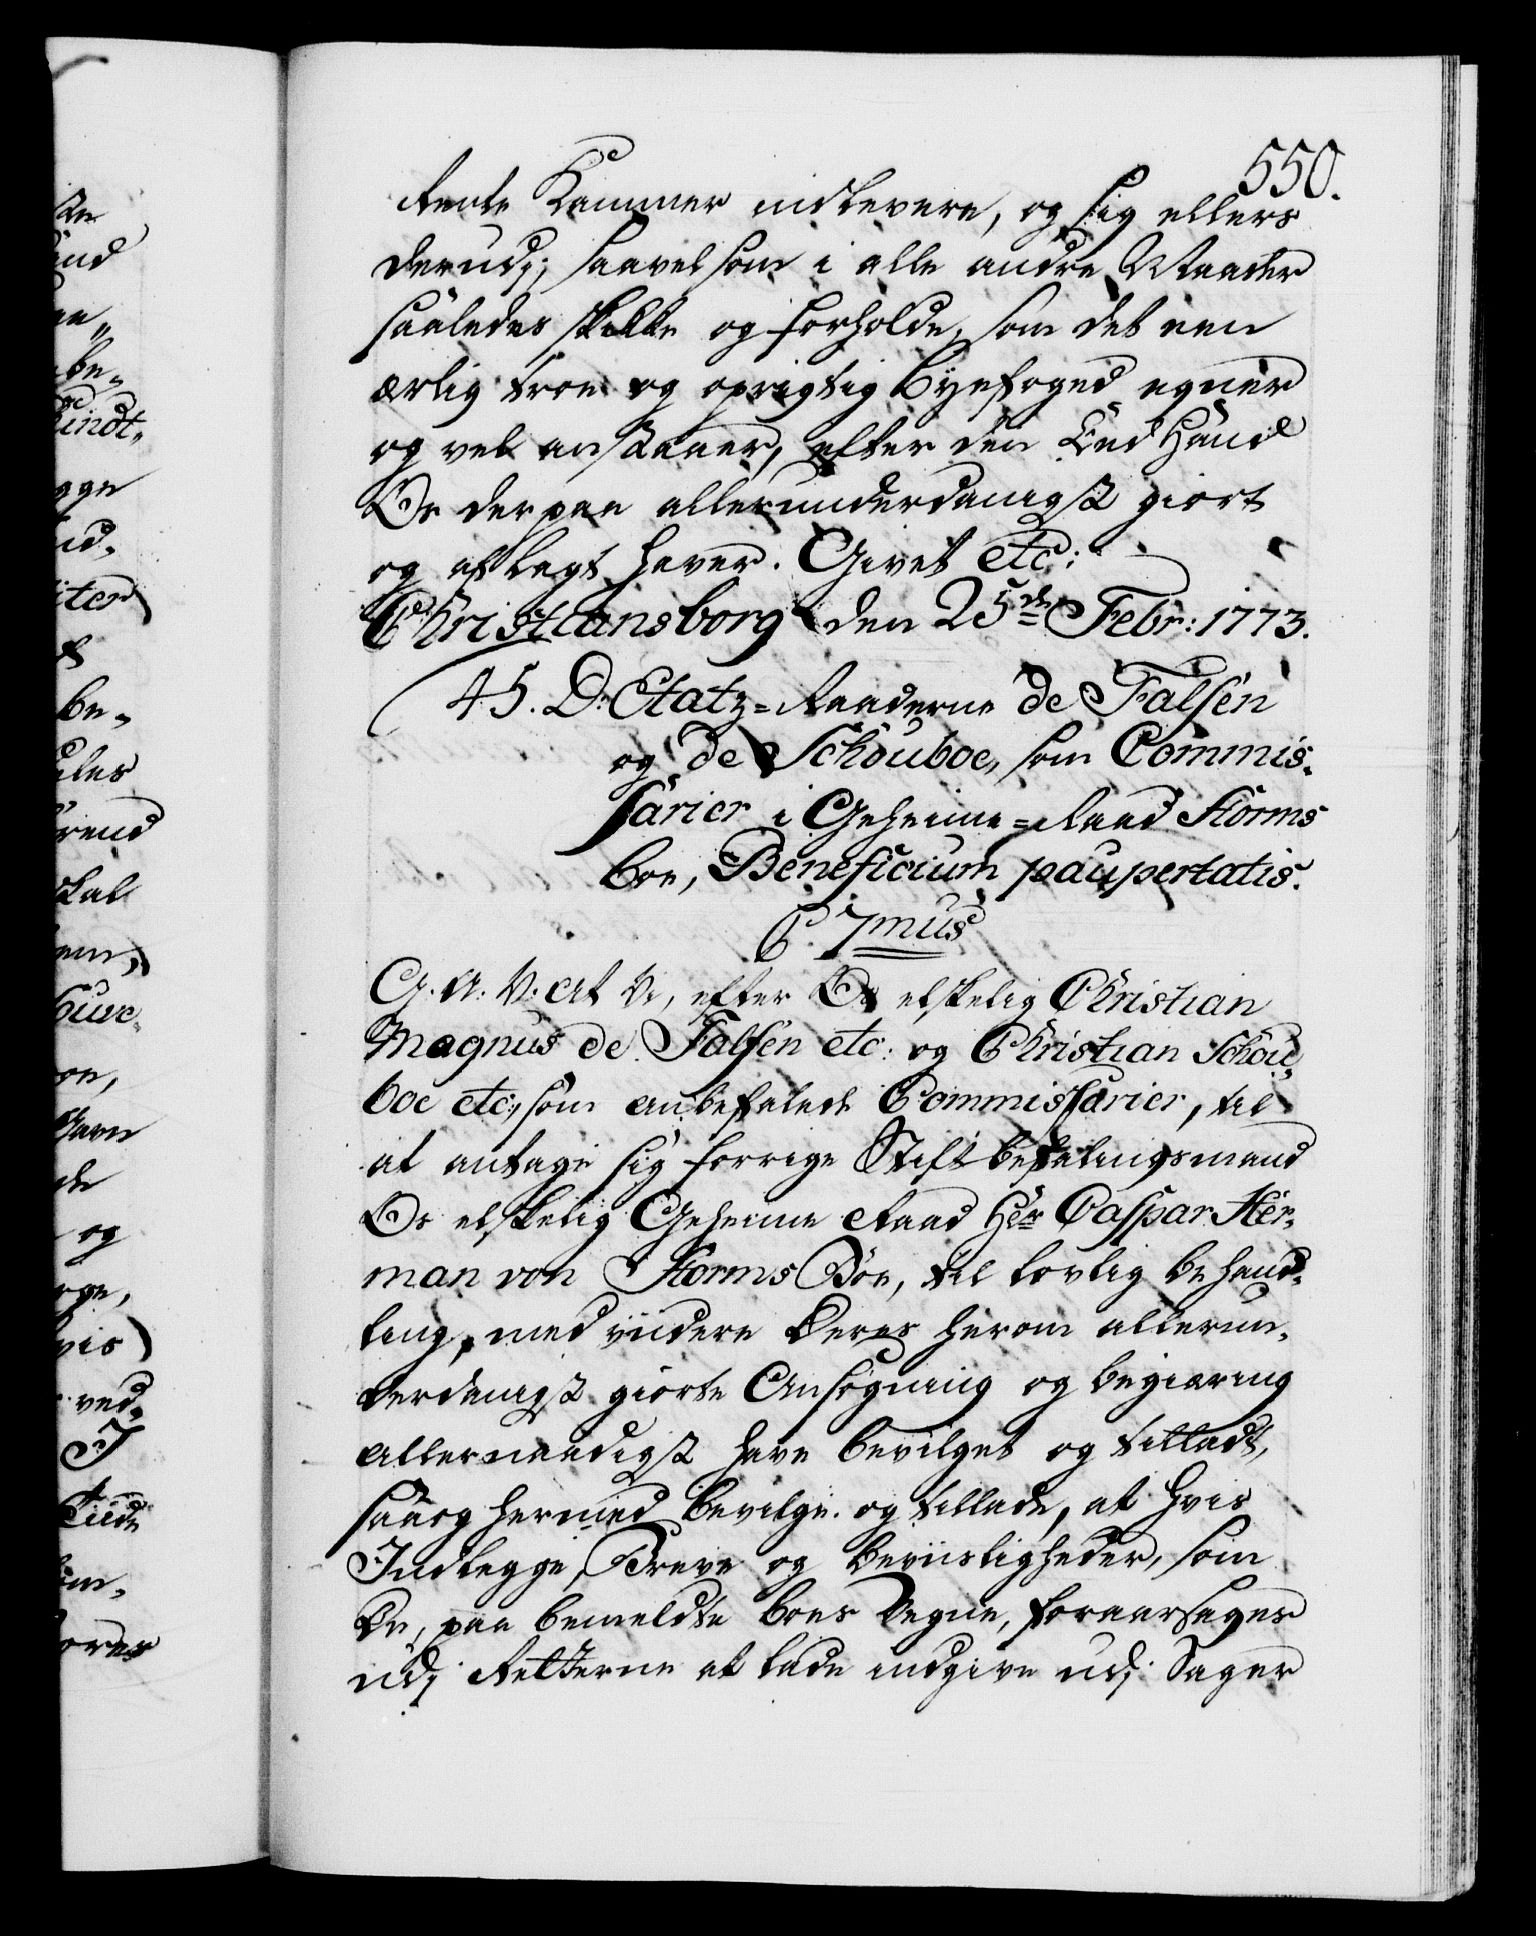 550.
Rente Kammer indlevere, og sig ellers
derudj, saavelsom i alle andre Maader
saaledes skikke og forholde, som det een
ærlig troe og oprigtig Byefoged egner
og vel anstaaer, efter den Eed Hand
Os derpaa allerunderdanigst giort
og aflagt haver. Givet etc:
Christiansborg den 25de Febr: 1773.
45. D: Etatz=Raaderne de Falsen
og de Schouboe, som Commis-
sarier i Geheime=Raad Storms
Boe, Beneficium paupertatis.
C. 7mus
G. A: V: at Vi, efter Os elskelig Christian
Magnus de Falsen etc: og Christian Schou-
boe etc:, som anbefalede Commissarier, til
at antage sig forrige Stiftbefalingsmand
Os elskelig Geheime Raad Hr Caspar Her-
man von Storms Boe, til lovlig behand-
ling, med viidere Deres herom allerun-
derdanigst giorte Ansøgning og begiæring
allernaadigst have bevilget og tilladt,
saa og hermed bevilge og tillade, at hvis
Indlegge, Breve og beviisligheder, som
De, paa bemeldte boes Vegne, foraarsages
udj Retterne at lade indgive udj Sager